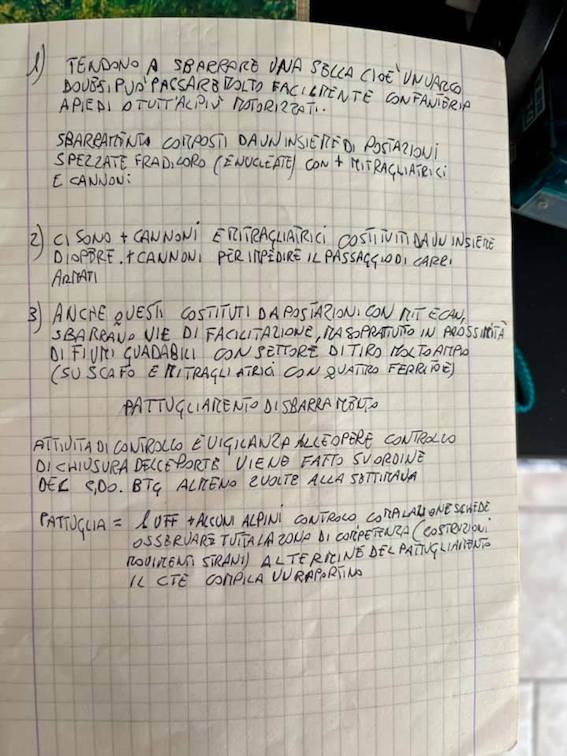 1) TENDONO A SBARRARE UNA SELLA CIOÈ UN VARCO
DOVE SI PUÒ PASSARE MOLTO FACILMENTE CON FANTERIA
A PIEDI O TUTT'AL PIÙ MOTORIZZATI.
SBARRAMENTO COMPOSTI DA UN INSIEME DI POSTAZIONI
SPEZZATE FRA DI LORO (ENUCLEATE) CON + MITRAGLIATRICI
E CANNONI
2) CI SONO + CANNONI E MITRAGLIATRICI COSTITUITI DA UN INSIEME
DI OPERE. + CANNONI PER IMPEDIRE IL PASSAGGIO DI CARRI
ARMATI
3) ANCHE QUESTI COSTITUTI DA POSTAZIONI CON MIT E CAN,
SBARRANO VIE DI FACILITAZIONE, MA SOPRATUTTO IN PROSSIMITÀ
DI FIUMI GUADABILI CON SETTORE DI TIRO MOLTO AMPIO
(SU SCAFO E MITRAGLIATRICI CON QUATTRO FERITOIE)
PATTUGLIAMENTO DI SBARRAMENTO
ATTIVITÀ DI CONTROLLO E VIGILANZA ALLE OPERE CONTROLLO
DI CHIUSURA DELLE PORTE VIENE FATTO SU ORDINE
DEL BTG ALMENO 2 VOLTE ALLA SETTIMANA
PATTUGLIA = 1 UFF + ALCUNI ALPINI CONTROLO SCHEDE
OSSERVARE TUTTA LA ZONA DI COMPETENZA (COSTRUZIONI
MOVIMENTI STRANI) AL TERMINE DEL PATTUGLIAMENTO
IL CTE COMPILA UN RAPORTINO